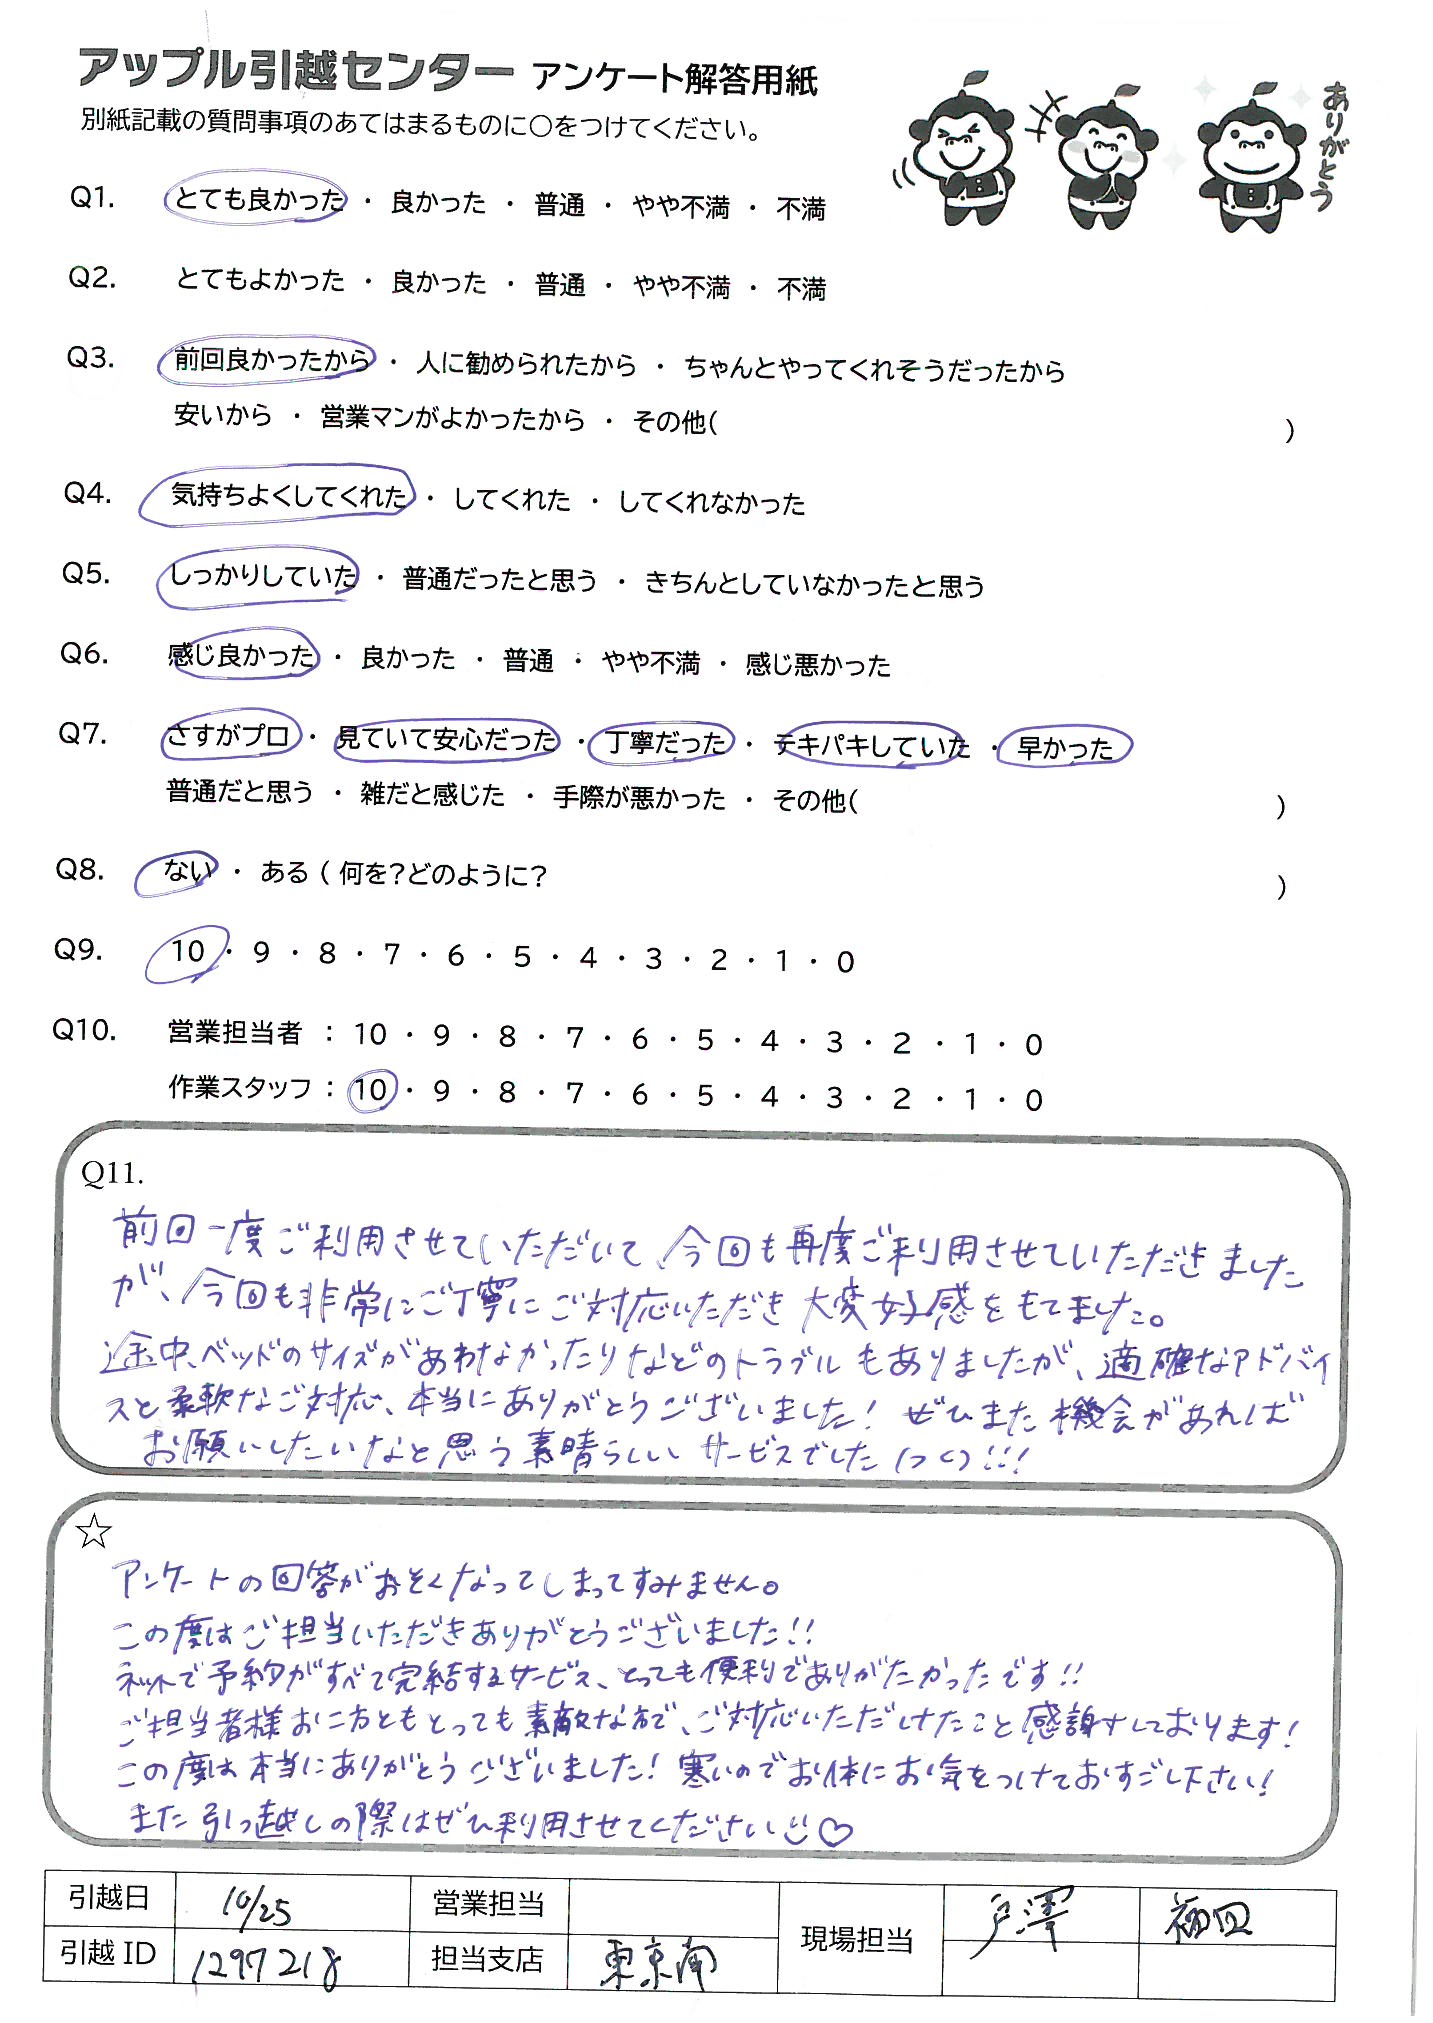 アップル引越センター アンケート解答用紙
別紙記載の質問事項のあてはまるものに〇をつけてください。
ありがとう
Q1. とても良かった ・ 良かった ・ 普通 ・ やや不満 ・ 不満
Q2. とてもよかった ・ 良かった ・ 普通 ・ やや不満 ・ 不満
Q3. 前回良かったから ・ 人に勧められたから ・ ちゃんとやってくれそうだったから
安いから ・ 営業マンがよかったから ・ その他( )
Q4. 気持ちよくしてくれた ・ してくれた ・ してくれなかった
Q5. しっかりしていた ・ 普通だったと思う ・ きちんとしていなかったと思う
Q6. 感じ良かった ・ 良かった ・ 普通 ・ やや不満 ・ 感じ悪かった
Q7. さすがプロ ・ 見ていて安心だった ・ 丁寧だった ・ テキパキしていた ・ 早かった
普通だと思う ・ 雑だと感じた ・ 手際が悪かった ・ その他( )
Q8. ない ・ ある ( 何を?どのように? )
Q9. 10 ・ 9 ・ 8 ・ 7 ・ 6 ・ 5 ・ 4 ・ 3 ・ 2 ・ 1 ・ 0
Q10. 営業担当者 : 10 ・ 9 ・ 8 ・ 7 ・ 6 ・ 5 ・ 4 ・ 3 ・ 2 ・ 1 ・ 0
作業スタッフ : 10 ・ 9 ・ 8 ・ 7 ・ 6 ・ 5 ・ 4 ・ 3 ・ 2 ・ 1 ・ 0
Q11.
前回一度ご利用させていただいて、今回も再度ご利用させていただきました
が、今回も非常にご丁寧にご対応いただき大変好感をもてました。
途中、ベッドのサイズがあわなかったりなどのトラブルもありましたが、適確なアドバイ
スと柔軟なご対応、本当にありがとうございました! ぜひまた機会があれば
お願いしたいなと思う素晴らしいサービスでした!!!
☆
アンケートの回答がおそくなってしまってすみません。
この度はご担当いただきありがとうございました!!
ネットで予約がすべて完結するサービス、とっても便利でありがたかったです!!
ご担当者様お二方ともとっても素敵な方で、ご対応いただけたこと感謝しております!
この度は本当にありがとうございました! 寒いのでお体にお気をつけておすごし下さい!
また引っ越しの際はぜひ利用させてください♡
引越日 10/25 営業担当 現場担当 戸澤 福田
引越 ID 1297218 担当支店 東京南